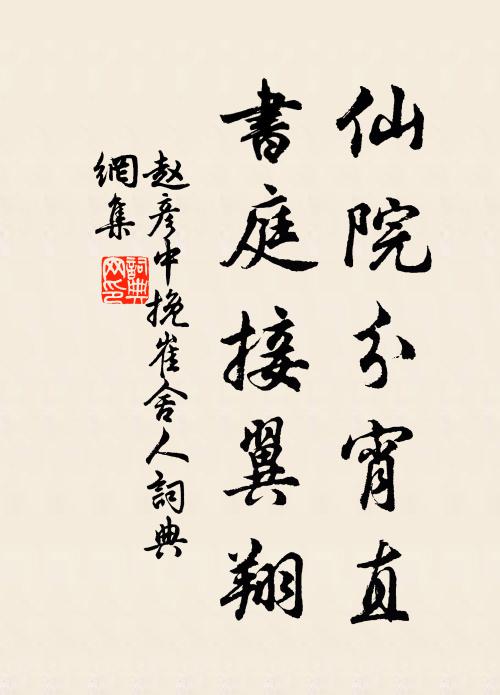 仙院分宵直
書庭接翼翔
赵彦中挽崔舍人詞典
網集
詞典網印